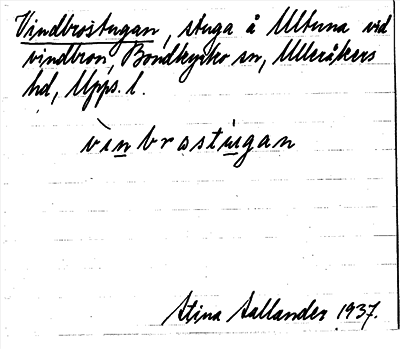 Vindbrostugan, stuga å Ultuna vid
vindbron, Bondkyrko sn, Ulleråkers
hd, Upps. l.
vìnbrastùgan
Stina Sallander 1937.